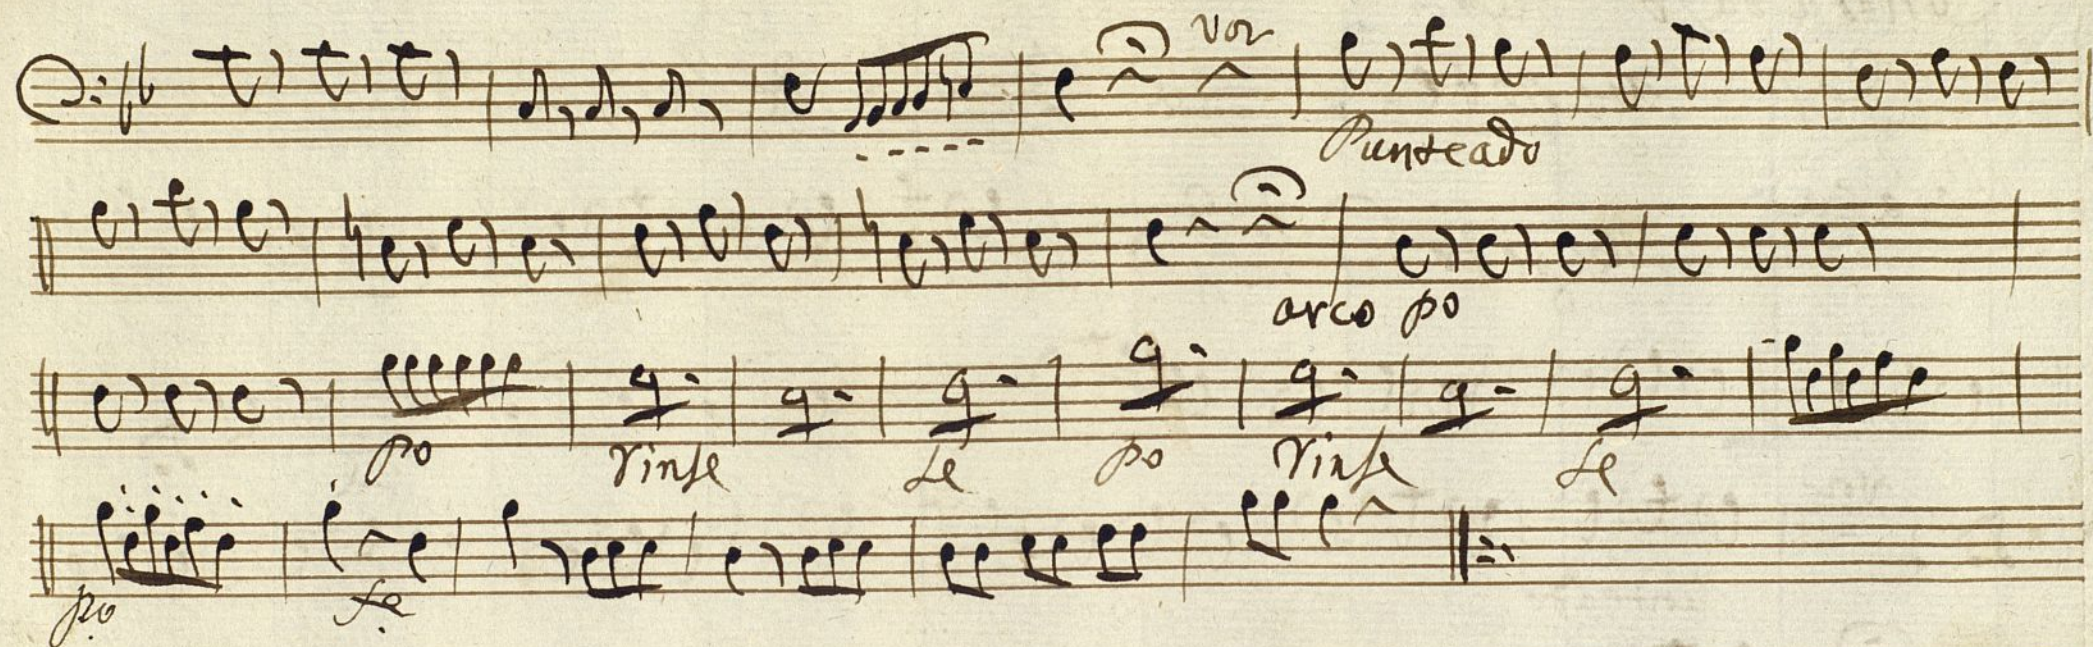 voz
Punteado
arco po
po rinfe fe po rinfe fe
po fe